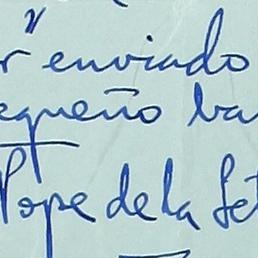 r enviado
equeño ba
Pope de la Se